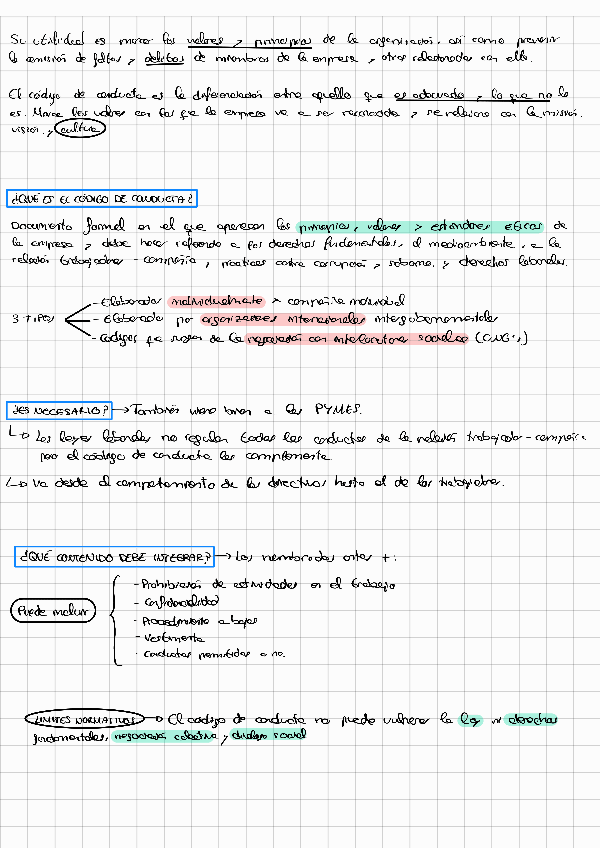 Su utilidad es marcar los valores y principios de la organización, así como prevenir
la comisión de faltas y delitos de miembros de la empresa y otros relacionados con ella.
El código de conducta es la diferenciación entre aquello que es adecuado y lo que no lo
es. Marca los valores con los que la empresa va a ser reconocida y se relaciona con la misión,
visión y cultura
¿QUÉ ES EL CÓDIGO DE CONDUCTA?
Documento formal en el que aparecen los principios, valores y estándares éticos de
la empresa y debe hacer referencia a los derechos fundamentales, al medioambiente, a la
relación trabajador - compañía, prácticas contra corrupción y soborno, y derechos laborales.
3 TIPOS
- Elaborados individualmente x compañía individual
- Elaborado por organizaciones internacionales intergubernamentales
- Códigos que surgen de la negociación con interlocutores sociales (ONG's)
¿ES NECESARIO? → También viene bien a las PYMES.
↳ Las leyes laborales no regulan todas las conductas de la relación trabajador - compañía
pero el código de conducta las complementa
↳ Va desde el comportamiento de los directivos hasta el de los trabajadores.
¿QUÉ CONTENIDO DEBE INTEGRAR? → Los nombrados antes +:
Puede incluir
- Prohibición de actividades en el trabajo
- Confidencialidad
- Procedimiento a bajas
- Vestimenta
- Conductas permitidas o no.
LÍMITES NORMATIVOS → El código de conducta no puede vulnerar la ley ni derechos
fundamentales, negociación colectiva y diálogo social